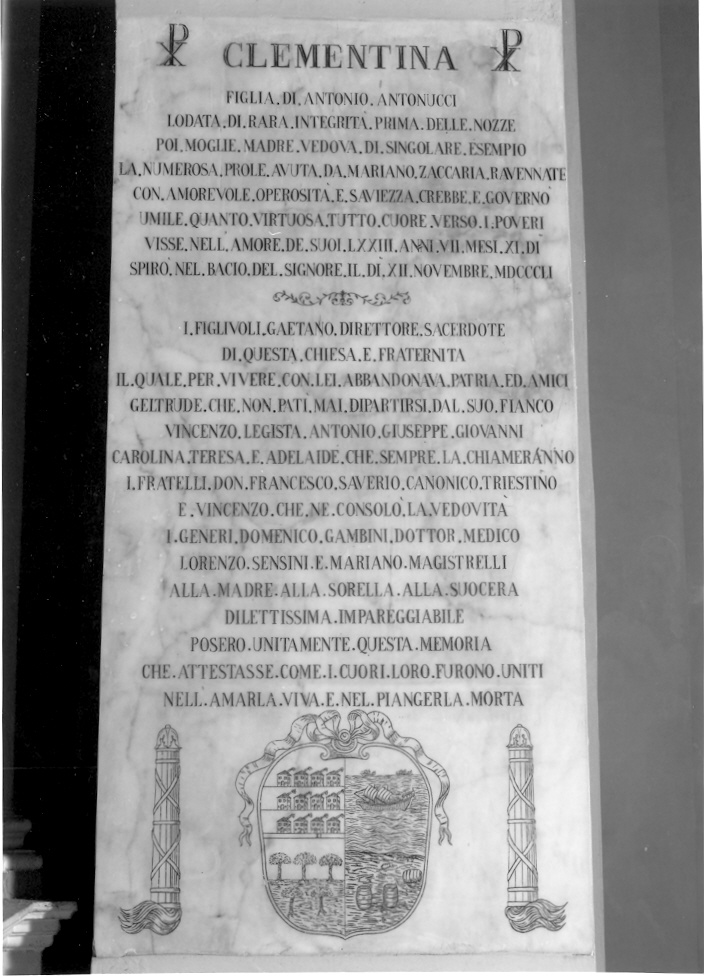 ☧ CLEMENTINA ☧
FIGLIA.DI.ANTONIO.ANTONUCCI
LODATA.DI.RARA.INTEGRITÀ.PRIMA.DELLE.NOZZE
POI.MOGLIE.MADRE.VEDOVA.DI.SINGOLARE.ESEMPIO
LA.NUMEROSA.PROLE.AVUTA.DA.MARIANO.ZACCARIA.RAVENNATE
CON.AMOREVOLE.OPEROSITÀ.E.SAVIEZZA.CREBBE.E.GOVERNÒ
UMILE.QUANTO.VIRTUOSA.TUTTO.CUORE.VERSO.I.POVERI
VISSE.NELL'AMORE.DE'SUOI.LXXIII.ANNI.VII.MESI.XI.DÌ
SPIRÒ.NEL.BACIO.DEL.SIGNORE.IL.DÌ.XII.NOVEMBRE.MDCCCLI
I.FIGLIVOLI.GAETANO.DIRETTORE.SACERDOTE
DI.QUESTA.CHIESA.E.FRATERNITA
IL.QUALE.PER.VIVERE.CON.LEI.ABBANDONAVA.PATRIA.ED.AMICI
GELTRUDE.CHE.NON.PATÌ.MAI.DIPARTIRSI.DAL.SUO.FIANCO
VINCENZO.LEGISTA.ANTONIO.GIUSEPPE.GIOVANNI
CAROLINA.TERESA.E.ADELAIDE.CHE.SEMPRE.LA.CHIAMERANNO
I.FRATELLI.DON.FRANCESCO.SAVERIO.CANONICO.TRIESTINO
E.VINCENZO.CHE.NE.CONSOLÒ.LA.VEDOVITÀ
I.GENERI.DOMENICO.GAMBINI.DOTTOR.MEDICO
LORENZO.SENSINI.E.MARIANO.MAGISTRELLI
ALLA.MADRE.ALLA.SORELLA.ALLA.SUOCERA
DILETTISSIMA.IMPAREGGIABILE
POSERO.UNITAMENTE.QUESTA.MEMORIA
CHE.ATTESTASSE.COME.I.CUORI.LORO.FURONO.UNITI
NELL'AMARLA.VIVA.E.NEL.PIANGERLA.MORTA